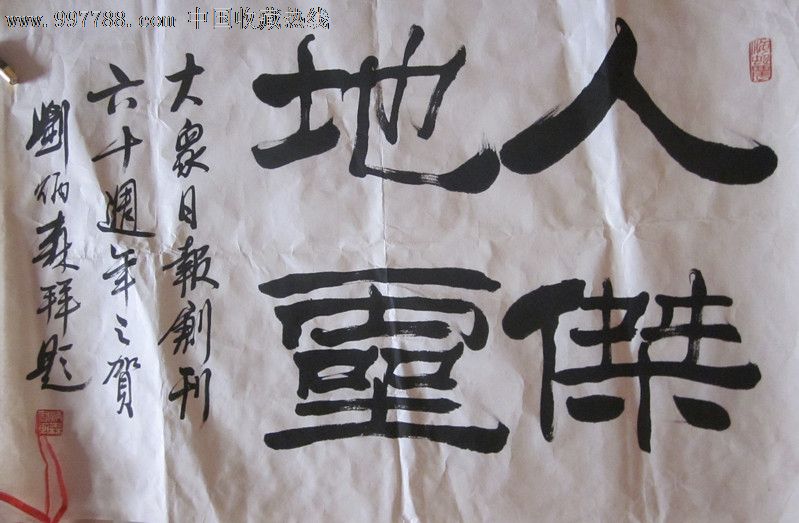 www.997788.com 中国收藏热线
人傑
地靈
大衆日報創刊
六十週年之賀
劉炳森拜題